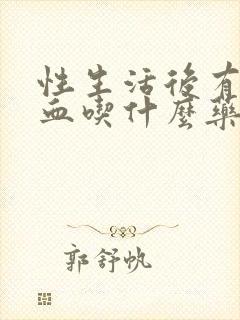 性生活後有
血喫什麼藥
郭舒帆